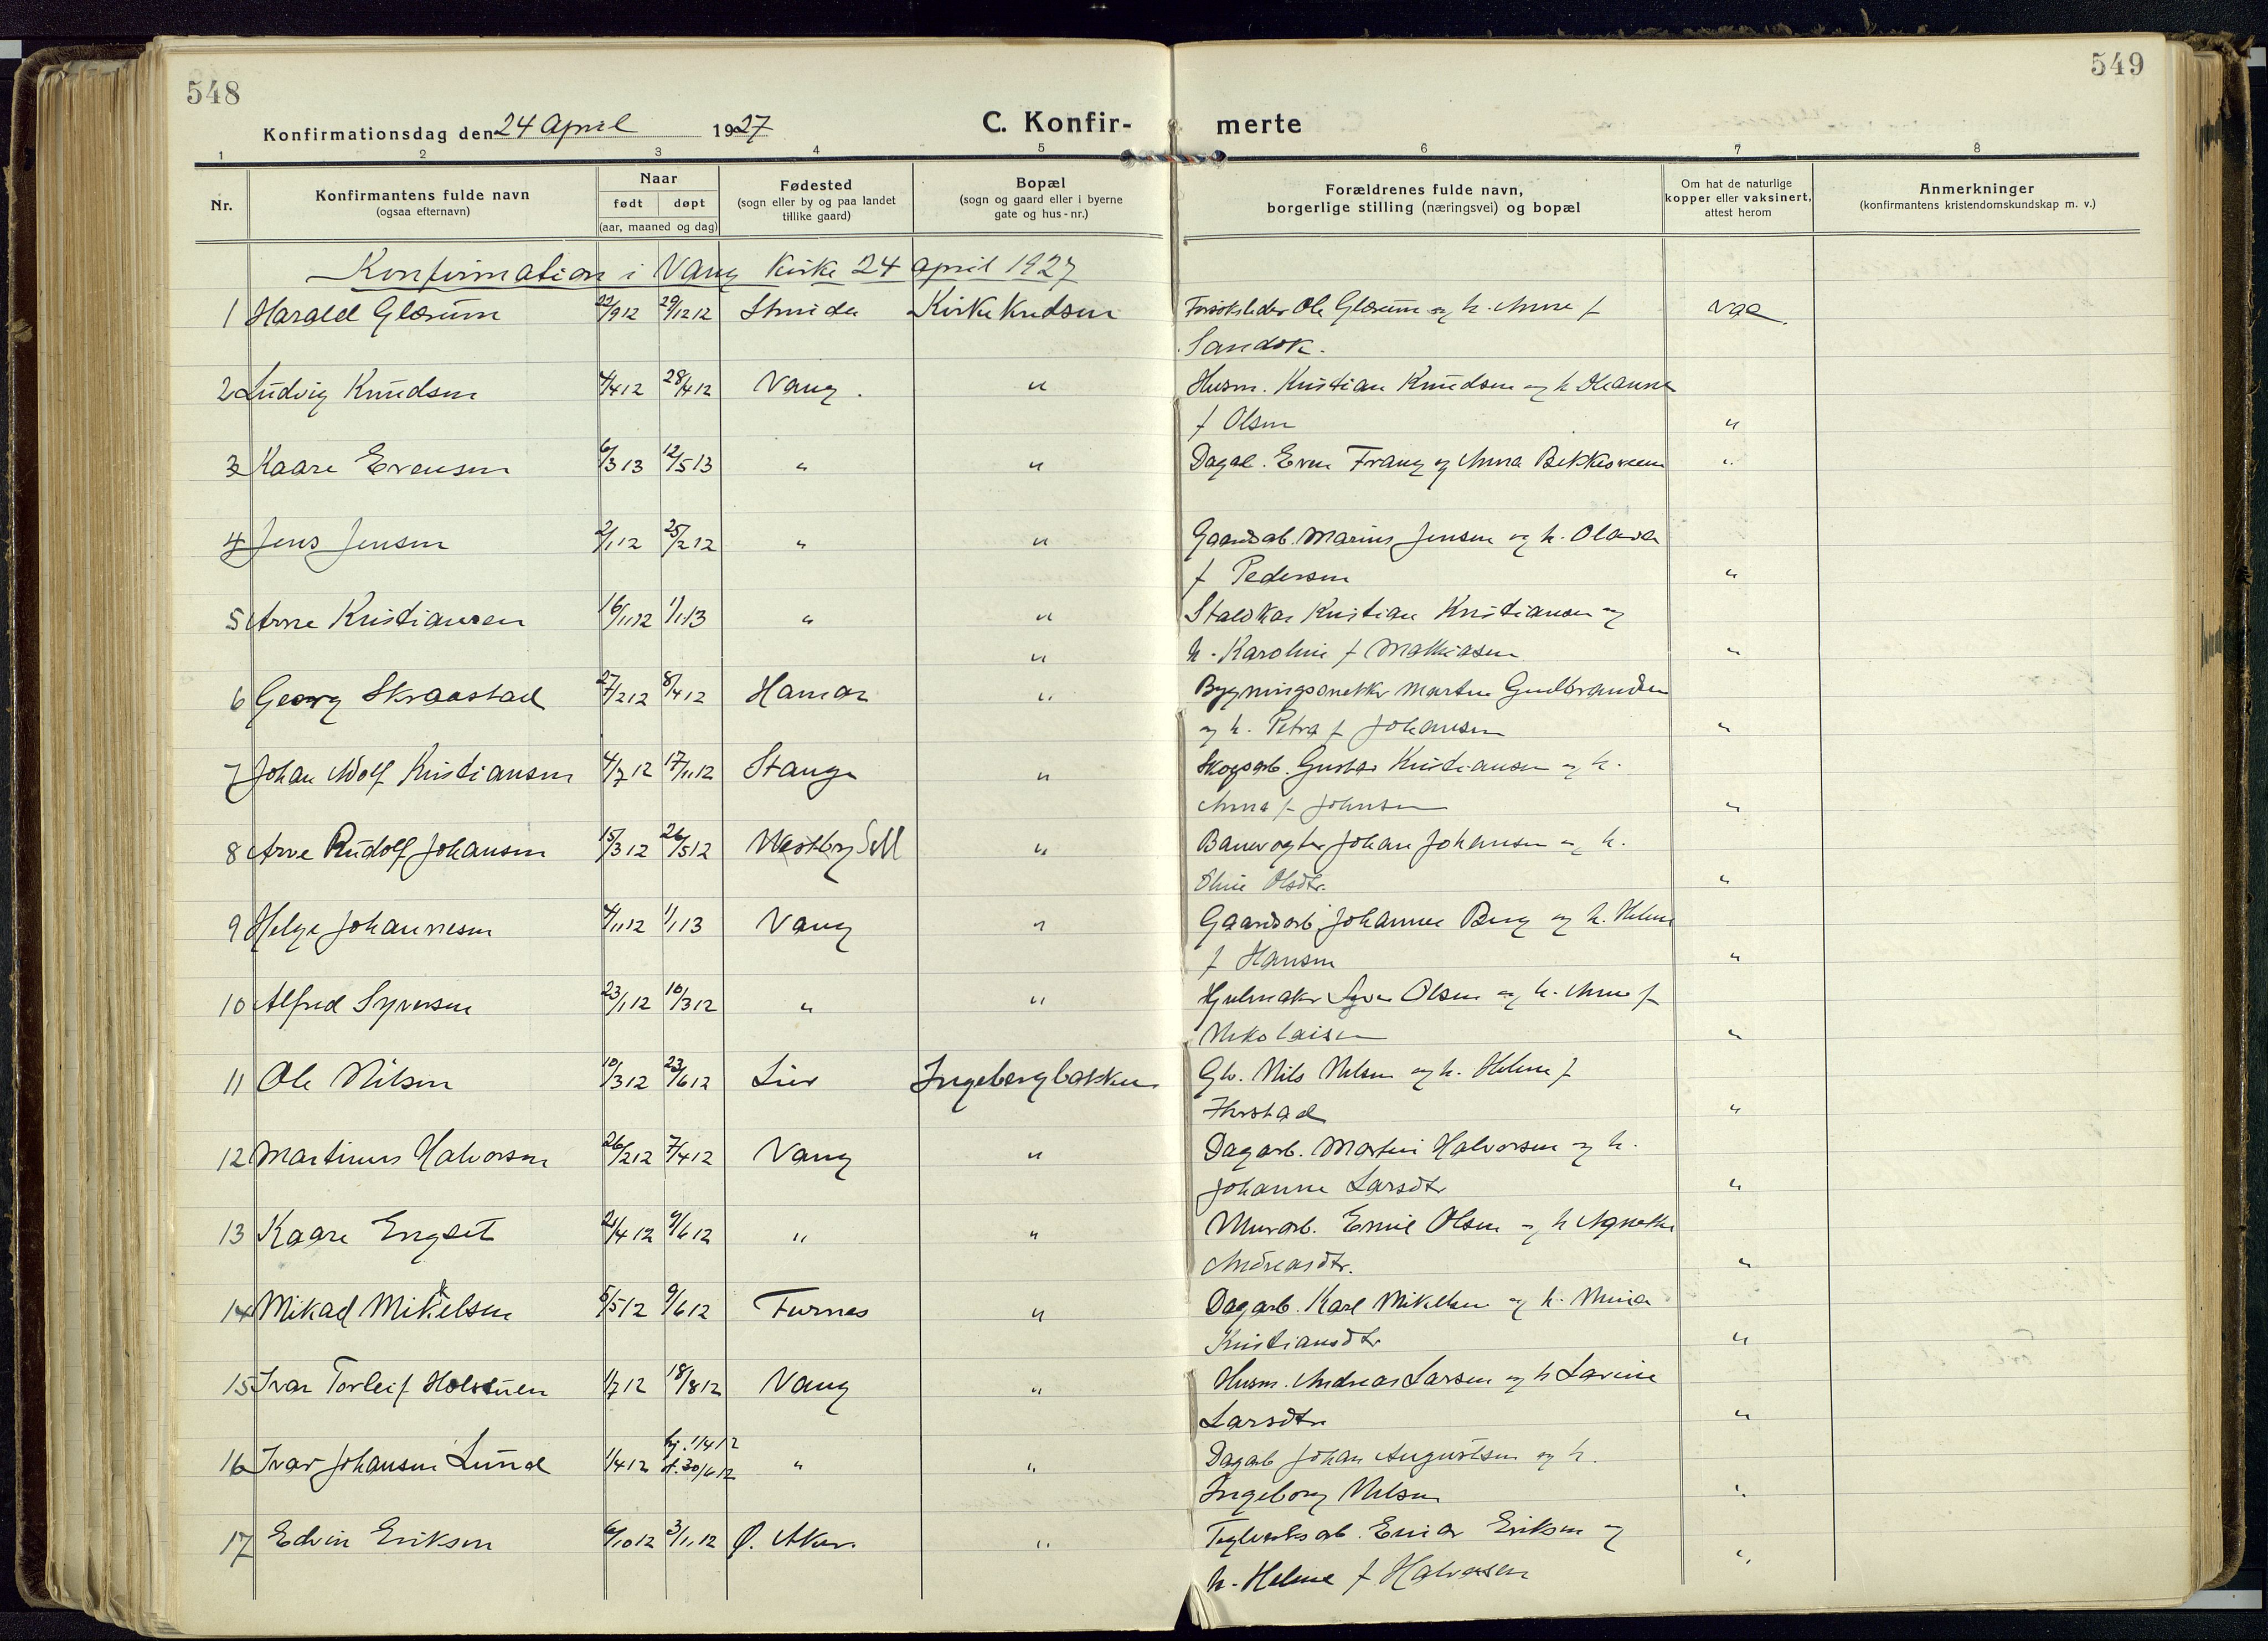 548
549
Konfirmationsdag den 24 April 1927
C. Konfir- merte
1 2 3 4 5 6 7 8
Nr.
Konfirmantens fulde navn
(ogsaa efternavn)
Naar
født døpt
(aar, maaned og dag)
Fødested
(sogn eller by og paa landet
tillike gaard)
Bopæl
(sogn og gaard eller i byerne
gate og hus-nr.)
Forældrenes fulde navn,
borgerlige stilling (næringsvei) og bopæl
Om hat de naturlige
kopper eller vaksinert,
attest herom
Anmerkninger
(konfirmantens kristendomskundskap m. v.)
Konfirmation i Vang kirke 24 april 1927
1 Harald Glærum 22/9 12 29/12 12 Kirke Ole Glærum og h. Anna f vac.
Sandok.
2 Ludvig Knudsen 4/4 12 28/4 12 Vang. " Husm. Kristian Knudsen og h Oleanna
f Olsen "
3 Kaare Evensen 6/3 13 12/5 13 " " Dagal. Even Frang og Anna "
4 Jens Jensen 2/1 12 25/2 12 " " Gaardsarb. Marius Jensen og h. Olava
f Pedersen "
5 Arne Kristiansen 16/11 12 1/1 13 " " Staldkar Kristian Kristiansen og
" h. Karoline f Mathiasen "
6 Georg Skraastad 27/2 12 8/4 12 Hamar " Bygningssnekker Martin Gudbrandsen
og h. Petra f Johansen "
7 Johan Adolf Kristiansen 4/7 12 17/11 12 Stange " Skogsarb. Gustav Kristiansen og h.
Anna f Johnsen "
8 Arve Rudolf Johansen 15/3 12 26/5 12 Westby " Banevogter Johan Johansen og h.
Oline Olsdtr. "
9 Helge Johannesen 4/11 12 1/1 13 Vang " Gaardsarb Johannes Berg og h. Helene
f Hansen "
10 Alfred Syversen 23/1 12 10/3 12 " " Hjulmaker Syver Olsen og h. Anne f
Nikolaisen "
11 Ole Nilsen 10/3 12 23/6 12 Lier Ingebergbakken Gb. Nils Nilsen og h. Helene f
"
12 Martinus Halvorsen 26/2 12 7/4 12 Vang " Dagarb. Martin Halvorsen og h.
Johanne Larsdtr "
13 Kaare Engset 21/4 12 9/6 12 " " Murarb. Emil Olsen og h Agnethe
Andreasdtr. "
14 Mikael Mikkelsen 5/5 12 9/6 12 Furnes " Dagarb. Karl Mikkelsen og h. Mina
Kristiansdtr "
15 Ivar Torleif Holstuen 1/7 12 18/8 12 Vang " Husm. Andreas Larsen og h Lavine
Larsdtr "
16 Ivar Johansen Lund 1/4 12 hj. 1/4 12 st. 30/6 12 " " Dagarb Johan Augustsen og h.
Ingeborg Nilsen "
17 Edvin Eriksen 6/10 12 3/11 12 Ø. Aker. " Teglverksarb. Einar Eriksen og
h. Helene f Halvorsen "